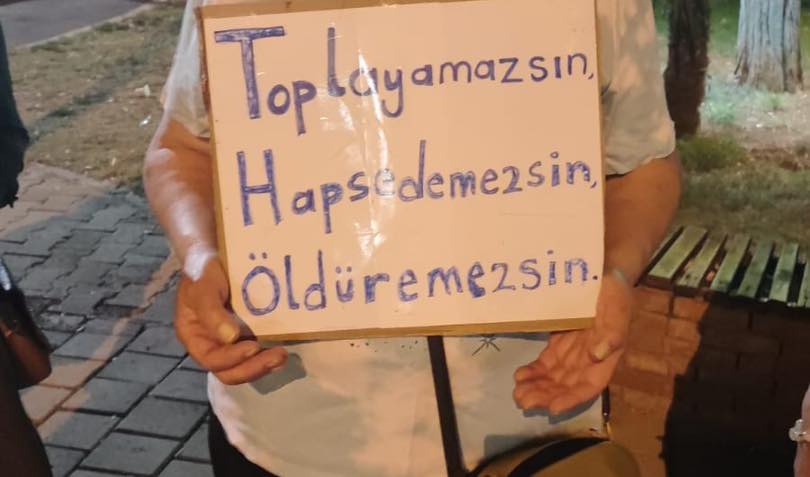 Toplayamazsın,
Hapsedemezsin,
Öldüremezsin.